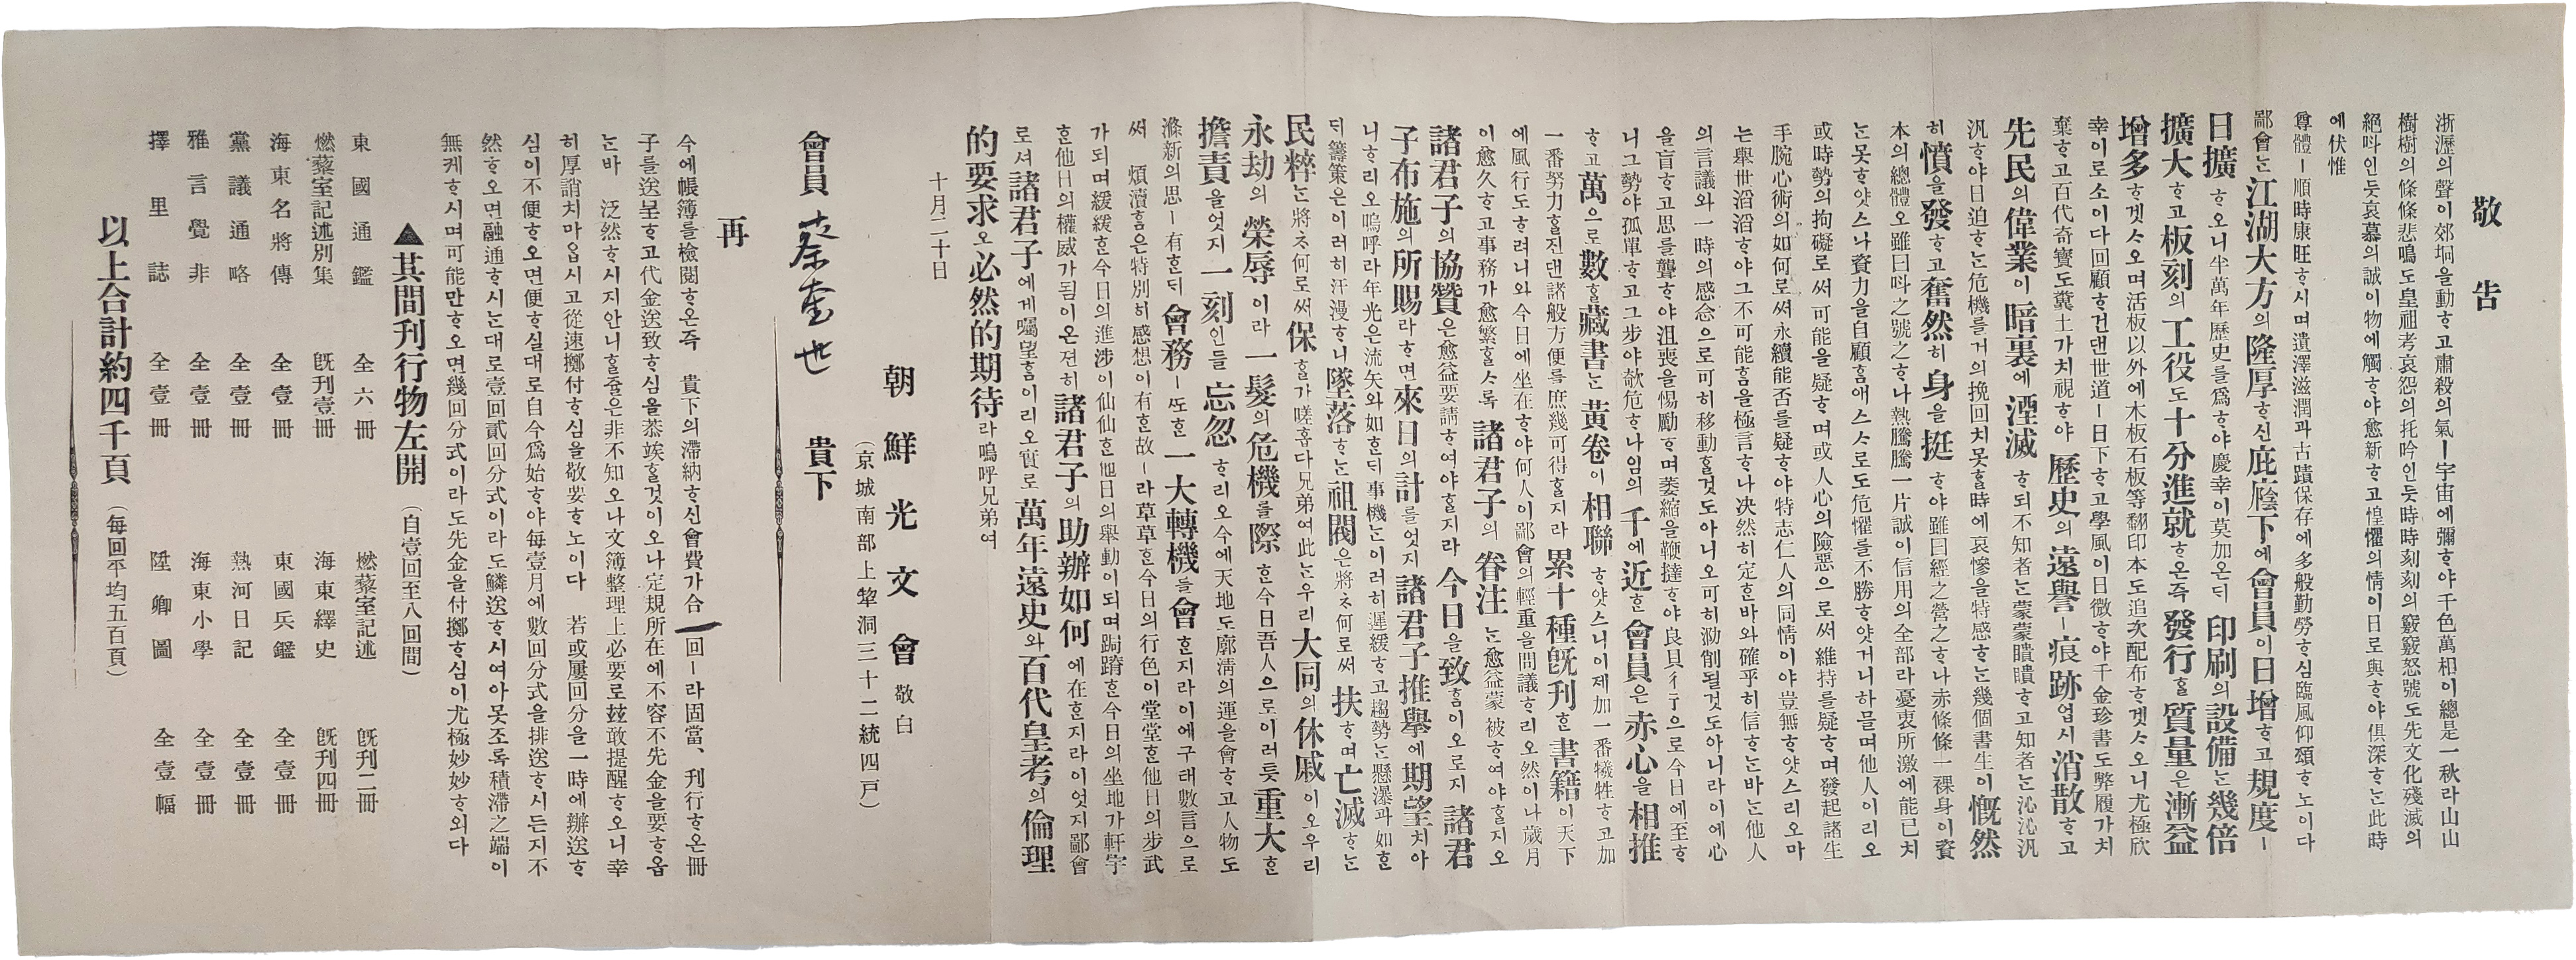 敬告
浙瀝의聲이郊坰을動ᄒᆞ고肅殺의氣ㅣ宇宙에彌ᄒᆞ야千色萬相이總是一秋라山山
樹樹의條條悲鳴도皇祖考哀怨의托吟인듯時時刻刻의竅竅怒號도先文化殘滅의
絕叫인듯哀慕의誠이物에觸ᄒᆞ야愈新ᄒᆞ고惶懼의情이日로與ᄒᆞ야俱深ᄒᆞᄂᆞᆫ此時
에伏惟
尊體ㅣ順時康旺ᄒᆞ시며遺澤滋潤과古蹟保存에多般勤勞ᄒᆞ심臨風仰頌ᄒᆞ노이다
鄙會ᄂᆞᆫ江湖大方의隆厚ᄒᆞ신庇廕下에會員이日增ᄒᆞ고規度ㅣ
日擴ᄒᆞ오니半萬年歷史를爲ᄒᆞ야慶幸이莫加온ᄃᆡ印刷의設備ᄂᆞᆫ幾倍
擴大ᄒᆞ고板刻의工役도十分進就ᄒᆞ온즉發行ᄒᆞᆯ質量은漸益
增多ᄒᆞ겟ᄉᆞ오며活板以外에木板石板等翻印本도追次配布ᄒᆞ겟ᄉᆞ오니尤極欣
幸이로소이다回顧ᄒᆞ건댄世道ㅣ日下ᄒᆞ고學風이日微ᄒᆞ야千金珍書도弊履가치
棄ᄒᆞ고百代奇寶도糞土가치視ᄒᆞ야歷史의遠譽ㅣ痕跡업시消散ᄒᆞ고
先民의偉業이暗裏에湮滅ᄒᆞ되不知者ᄂᆞᆫ蒙蒙瞶瞶ᄒᆞ고知者ᄂᆞᆫ沁沁汎
汎ᄒᆞ야日迫ᄒᆞᄂᆞᆫ危機를거의挽回치못ᄒᆞᆯ時에哀慘을特感ᄒᆞᄂᆞᆫ幾個書生이慨然
히憤을發ᄒᆞ고奮然히身을挺ᄒᆞ야雖曰經之營之ᄒᆞ나赤條條一裸身이資
本의總體오雖曰叫之號之ᄒᆞ나熱騰騰一片誠이信用의全部라憂衷所激에能已치
ᄂᆞᆫ못ᄒᆞ얏스나資力을自顧ᄒᆞᆷ애스ᄉᆞ로도危懼를不勝ᄒᆞ얏거니하믈며他人이리오
或時勢의拘礙로써可能을疑ᄒᆞ며或人心의險惡으로써維持를疑ᄒᆞ며發起諸生
手腕心術의如何로써永續能否를疑ᄒᆞ야特志仁人의同情이야豈無ᄒᆞ얏스리오마
는擧世滔滔ᄒᆞ야그不可能ᄒᆞᆷ을極言ᄒᆞ나决然히定ᄒᆞᆫ바와確乎히信ᄒᆞᄂᆞᆫ바ᄂᆞᆫ他人
의言議와一時의感念으로可히移動ᄒᆞᆯ것도아니오可히泐削될것도아니라이에心
을盲ᄒᆞ고思를聾ᄒᆞ야沮喪을惕勵ᄒᆞ며萎縮을鞭撻ᄒᆞ야良貝彳亍으로今日에至ᄒᆞ
니그勢야孤單ᄒᆞ고그步야欹危ᄒᆞ나임의千에近ᄒᆞᆫ會員은赤心을相推
ᄒᆞ고萬으로數ᄒᆞᆯ藏書ᄂᆞᆫ黃卷이相聯ᄒᆞ얏스니이제加一番犧牲ᄒᆞ고加
一番努力ᄒᆞᆯ진댄諸般方便를庶幾可得ᄒᆞᆯ지라累十種旣刊ᄒᆞᆫ書籍이天下
에風行도ᄒᆞ려니와今日에坐在ᄒᆞ야何人이鄙會의輕重을間議ᄒᆞ리오然이나歲月
이愈久ᄒᆞ고事務가愈繁ᄒᆞᆯᄉᆞ록諸君子의眷注ᄂᆞᆫ愈益蒙被ᄒᆞ여야ᄒᆞᆯ지오
諸君子의協贊은愈益要請ᄒᆞ여야ᄒᆞᆯ지라今日을致ᄒᆞᆷ이오로지諸君
子布施의所賜라ᄒᆞ면來日의計를엇지諸君子推擧에期望치아
니ᄒᆞ리오嗚呼라年光은流矢와如ᄒᆞᆫᄃᆡ事機ᄂᆞᆫ이러히遲緩ᄒᆞ고趨勢ᄂᆞᆫ懸瀑과如ᄒᆞᆫ
ᄃᆡ籌策은이러히汗漫ᄒᆞ니墜落ᄒᆞᄂᆞᆫ祖閥은將ᄎᆞ何로써扶ᄒᆞ며亡滅ᄒᆞᄂᆞᆫ
民粹ᄂᆞᆫ將ᄎᆞ何로써保ᄒᆞᆯ가嗟홉다兄弟여此ᄂᆞᆫ우리大同의休戚이오우리
永劫의榮辱이라一髮의危機를際ᄒᆞᆫ今日吾人으로이러틋重大ᄒᆞᆫ
擔責을엇지一刻인들忘忽ᄒᆞ리오今에天地도廓淸의運을會ᄒᆞ고人物도
滌新의思ㅣ有ᄒᆞᆫᄃᆡ會務ㅣᄯᅩᄒᆞᆫ一大轉機를會ᄒᆞᆫ지라이에구태數言으로
써 煩瀆ᄒᆞᆷ은特別히感想이有ᄒᆞᆫ故ㅣ라草草ᄒᆞᆫ今日의行色이堂堂ᄒᆞᆫ他日의步武
가되며緩緩ᄒᆞᆫ今日의進涉이仙仙ᄒᆞᆫ他日의擧動이되며跼蹐ᄒᆞᆫ今日의坐地가軒宇
ᄒᆞᆫ他日의權威가됨이온젼히諸君子의助辦如何에在ᄒᆞᆫ지라이엇지鄙會
로셔諸君子에게囑望ᄒᆞᆷ이리오實로萬年遠史와百代皇考의倫理
的要求오必然的期待라嗚呼兄弟여
十月二十日
朝鮮光文會敬白
(京城南部上犂洞三十二統四戶)
會員 貴下
再
今에帳簿를檢閱ᄒᆞ온즉 貴下의滯納ᄒᆞ신會費가合一回ㅣ라固當、刊行ᄒᆞ온冊
子를送呈ᄒᆞ고代金送致ᄒᆞ심을恭竢ᄒᆞᆯ것이오나定規所在에不容不先金을要ᄒᆞ옵
ᄂᆞᆫ바 泛然ᄒᆞ시지안니ᄒᆞᆯ줄은非不知오나文簿整理上必要로玆敢提醒ᄒᆞ오니幸
히厚誚치마옵시고從速擲付ᄒᆞ심을敬要ᄒᆞ노이다 若或屢回分을一時에辦送ᄒᆞ
심이不便ᄒᆞ오면便ᄒᆞ실대로自今爲始ᄒᆞ야每壹月에數回分式을排送ᄒᆞ시든지不
然ᄒᆞ오면融通ᄒᆞ시ᄂᆞᆫ대로壹回貳回分式이라도鱗送ᄒᆞ시여아못조록積滯之端이
無케ᄒᆞ시며可能만ᄒᆞ오면幾回分式이라도先金을付擲ᄒᆞ심이尤極妙妙ᄒᆞ외다
▲其間刊行物左開(自壹回至八回間)
東國通鑑 全六冊 燃藜室記述 旣刊二冊
燃藜室記述別集 旣刊壹冊 海東繹史 旣刊四冊
海東名將傳 全壹冊 東國兵鑑 全壹冊
黨議通略 全壹冊 熱河日記 全壹冊
雅言覺非 全壹冊 海東小學 全壹冊
擇里誌 全壹冊 陞卿圖 全壹幅
以上合計約四千頁(每回平均五百頁)